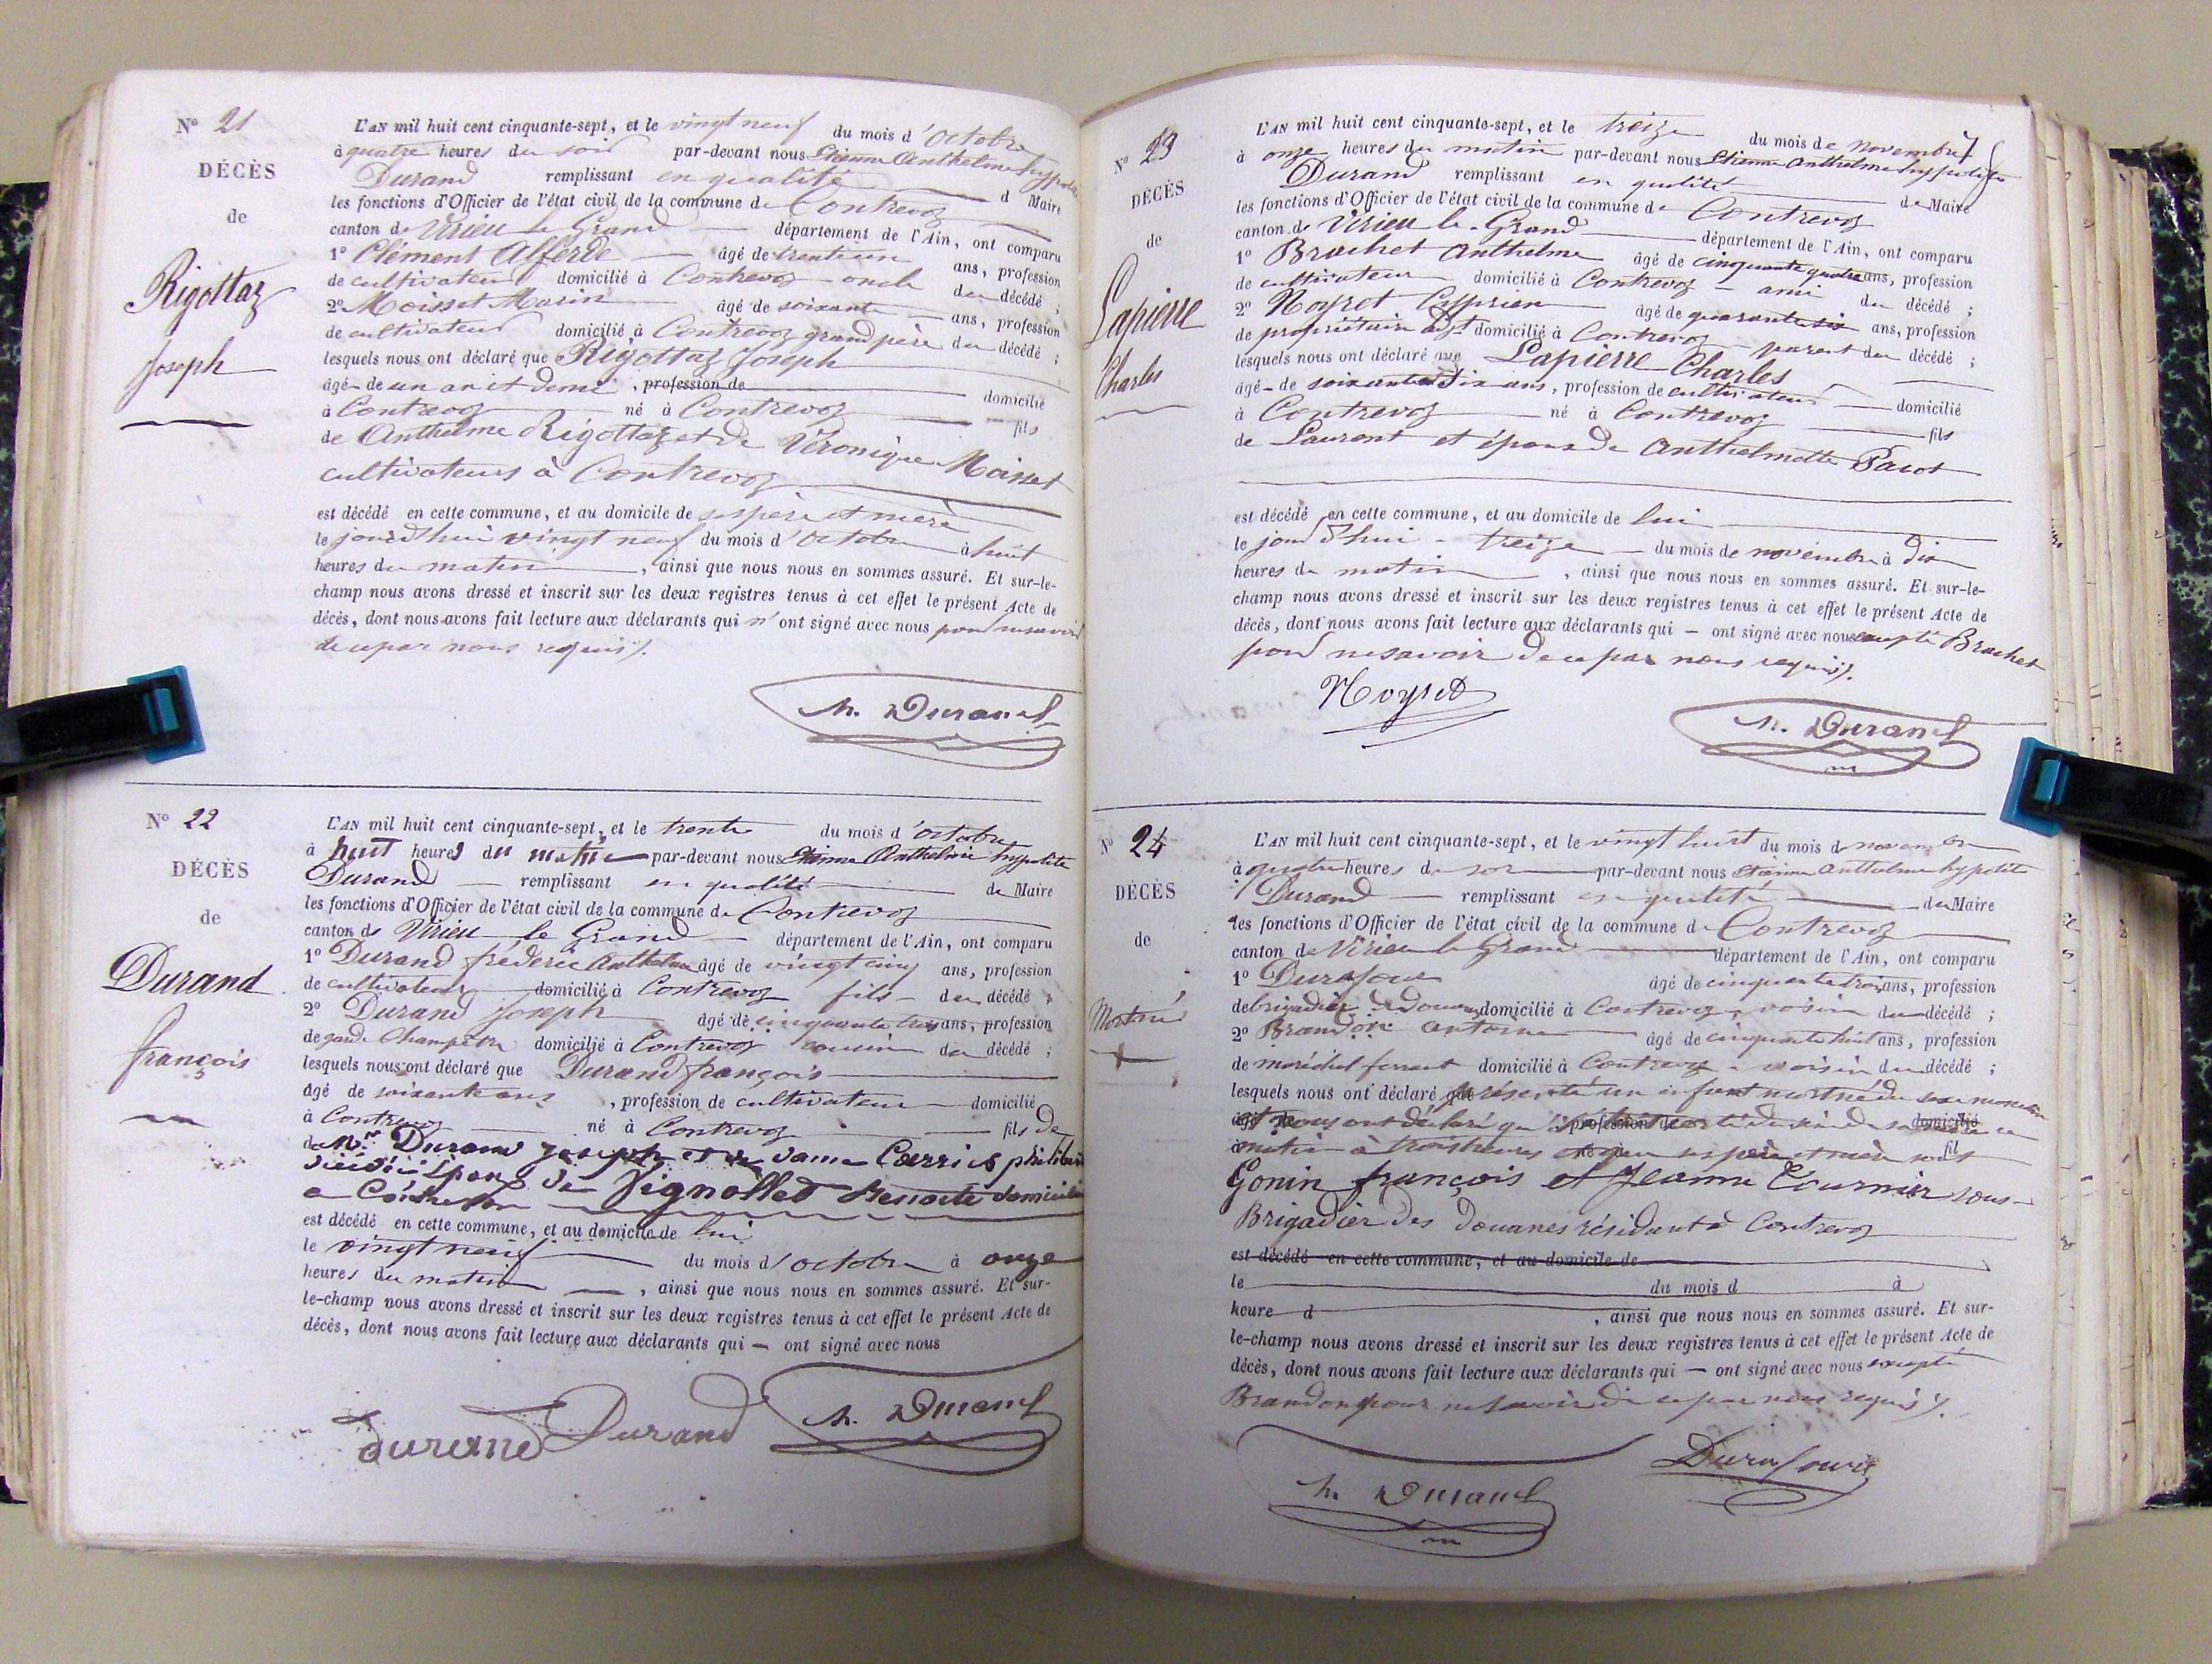 N° 21
DÉCÈS
de
Rigottaz
Joseph
L'AN mil huit cent cinquante-sept, et le vingt neuf du mois d'octobre
à quatre heures du soir par-devant nous Etienne Anthelme hypolite
Durand remplissant en qualité d Maire
les fonctions d'Officier de l'état civil de la commune de Contrevoz
canton de Virieu le Grand département de l'Ain, ont comparu
1° Clément Alferde âgé de trente un ans, profession
de cultivateur domicilié à Contrevoz oncle du décédé ;
2° Moisset Marin âgé de soixante ans, profession
de cultivateur domicilié à Contrevoz grand père du décédé ;
lesquels nous ont déclaré que Rigottaz Joseph
âgé de un an et demi, profession de domicilié
à Contrevoz né à Contrevoz fils
de Anthelme Rigottaz et de Véronique Moisset
cultivateurs à Contrevoz
est décédé en cette commune, et au domicile de ses père et mère
le jourd'hui vingt neuf du mois d'octobre à huit
heures du matin, ainsi que nous nous en sommes assuré. Et sur-le-
champ nous avons dressé et inscrit sur les deux registres tenus à cet effet le présent Acte de
décès, dont nous avons fait lecture aux déclarants qui n'ont signé avec nous pour ne savoir
de ce par nous requis /.
h. Durand
N° 22
DÉCÈS
de
Durand
françois
L'AN mil huit cent cinquante-sept, et le trente du mois d'octobre
à huit heures du matin par-devant nous Etienne Anthelme hypolite
Durand remplissant en qualité de Maire
les fonctions d'Officier de l'état civil de la commune de Contrevoz
canton de Virieu le Grand département de l'Ain, ont comparu
1° Durand fréderic Anthelme âgé de vingt cinq ans, profession
de cultivateur domicilié à Contrevoz fils du décédé ;
2° Durand Joseph âgé de cinquante trois ans, profession
de garde Champêtre domicilié à Contrevoz cousin du décédé ;
lesquels nous ont déclaré que Durand françois
âgé de soixante ans, profession de cultivateur domicilié
à Contrevoz né à Contrevoz fils de
Durand joseph et de dame Carrier philiberte
époux de Vignollet Benoite domicilié
a Contrevoz
est décédé en cette commune, et au domicile de lui
le vingt neuf du mois d'octobre à onze
heures du matin, ainsi que nous nous en sommes assuré. Et sur-
le-champ nous avons dressé et inscrit sur les deux registres tenus à cet effet le présent Acte de
décès, dont nous avons fait lecture aux déclarants qui — ont signé avec nous
Durand Durand h. Durand
N° 23
DÉCÈS
de
Lapierre
Charles
L'AN mil huit cent cinquante-sept, et le treize du mois de novembre
à onze heures du matin par-devant nous Etienne Anthelme hypolite
Durand remplissant en qualité de Maire
les fonctions d'Officier de l'état civil de la commune de Contrevoz
canton de Virieu le Grand département de l'Ain, ont comparu
1° Brachet Anthelme âgé de cinquante quatre ans, profession
de cultivateur domicilié à Contrevoz ami du décédé ;
2° Noyret Cyprien âgé de quarante six ans, profession
de propriétaire adjt domicilié à Contrevoz parent du décédé ;
lesquels nous ont déclaré que Lapierre Charles
âgé de soixante dix ans, profession de cultivateur domicilié
à Contrevoz né à Contrevoz fils
de Laurent et époux de Anthelmette Pacot
est décédé en cette commune, et au domicile de lui
le jourd'hui treize du mois de novembre à dix
heures du matin, ainsi que nous nous en sommes assuré. Et sur-le-
champ nous avons dressé et inscrit sur les deux registres tenus à cet effet le présent Acte de
décès, dont nous avons fait lecture aux déclarants qui — ont signé avec nous excepté Brachet
pour ne savoir de ce par nous requis /.
Noyret
h. Durand
N° 24
DÉCÈS
de
Mort né
L'AN mil huit cent cinquante-sept, et le vingt huit du mois de novembre
à quatre heures du soir par-devant nous Etienne Anthelme hypolite
Durand remplissant en qualité de Maire
les fonctions d'Officier de l'état civil de la commune de Contrevoz
canton de Virieu le Grand département de l'Ain, ont comparu
1° Durafour âgé de cinquante trois ans, profession
de brigadier de Douanes domicilié à Contrevoz voisin du décédé ;
2° Brandon antoine âgé de cinquante huit ans, profession
de maréchal ferrant domicilié à Contrevoz voisin du décédé ;
lesquels nous ont déclaré que présenté un enfant mort né du sexe masculin
et nous ont déclaré qu'il était sorti du sein de sa mère ce
matin à trois heures et que ses père et mère sont
Gonin françois et Jeanne Tournier sous-
Brigadier des Douanes résidant à Contrevoz
est décédé en cette commune, et au domicile de
le du mois d à
heure d, ainsi que nous nous en sommes assuré. Et sur-
le-champ nous avons dressé et inscrit sur les deux registres tenus à cet effet le présent Acte de
décès, dont nous avons fait lecture aux déclarants qui — ont signé avec nous excepté
Brandon pour ne savoir de ce par nous requis /.
h. Durand
Durafour